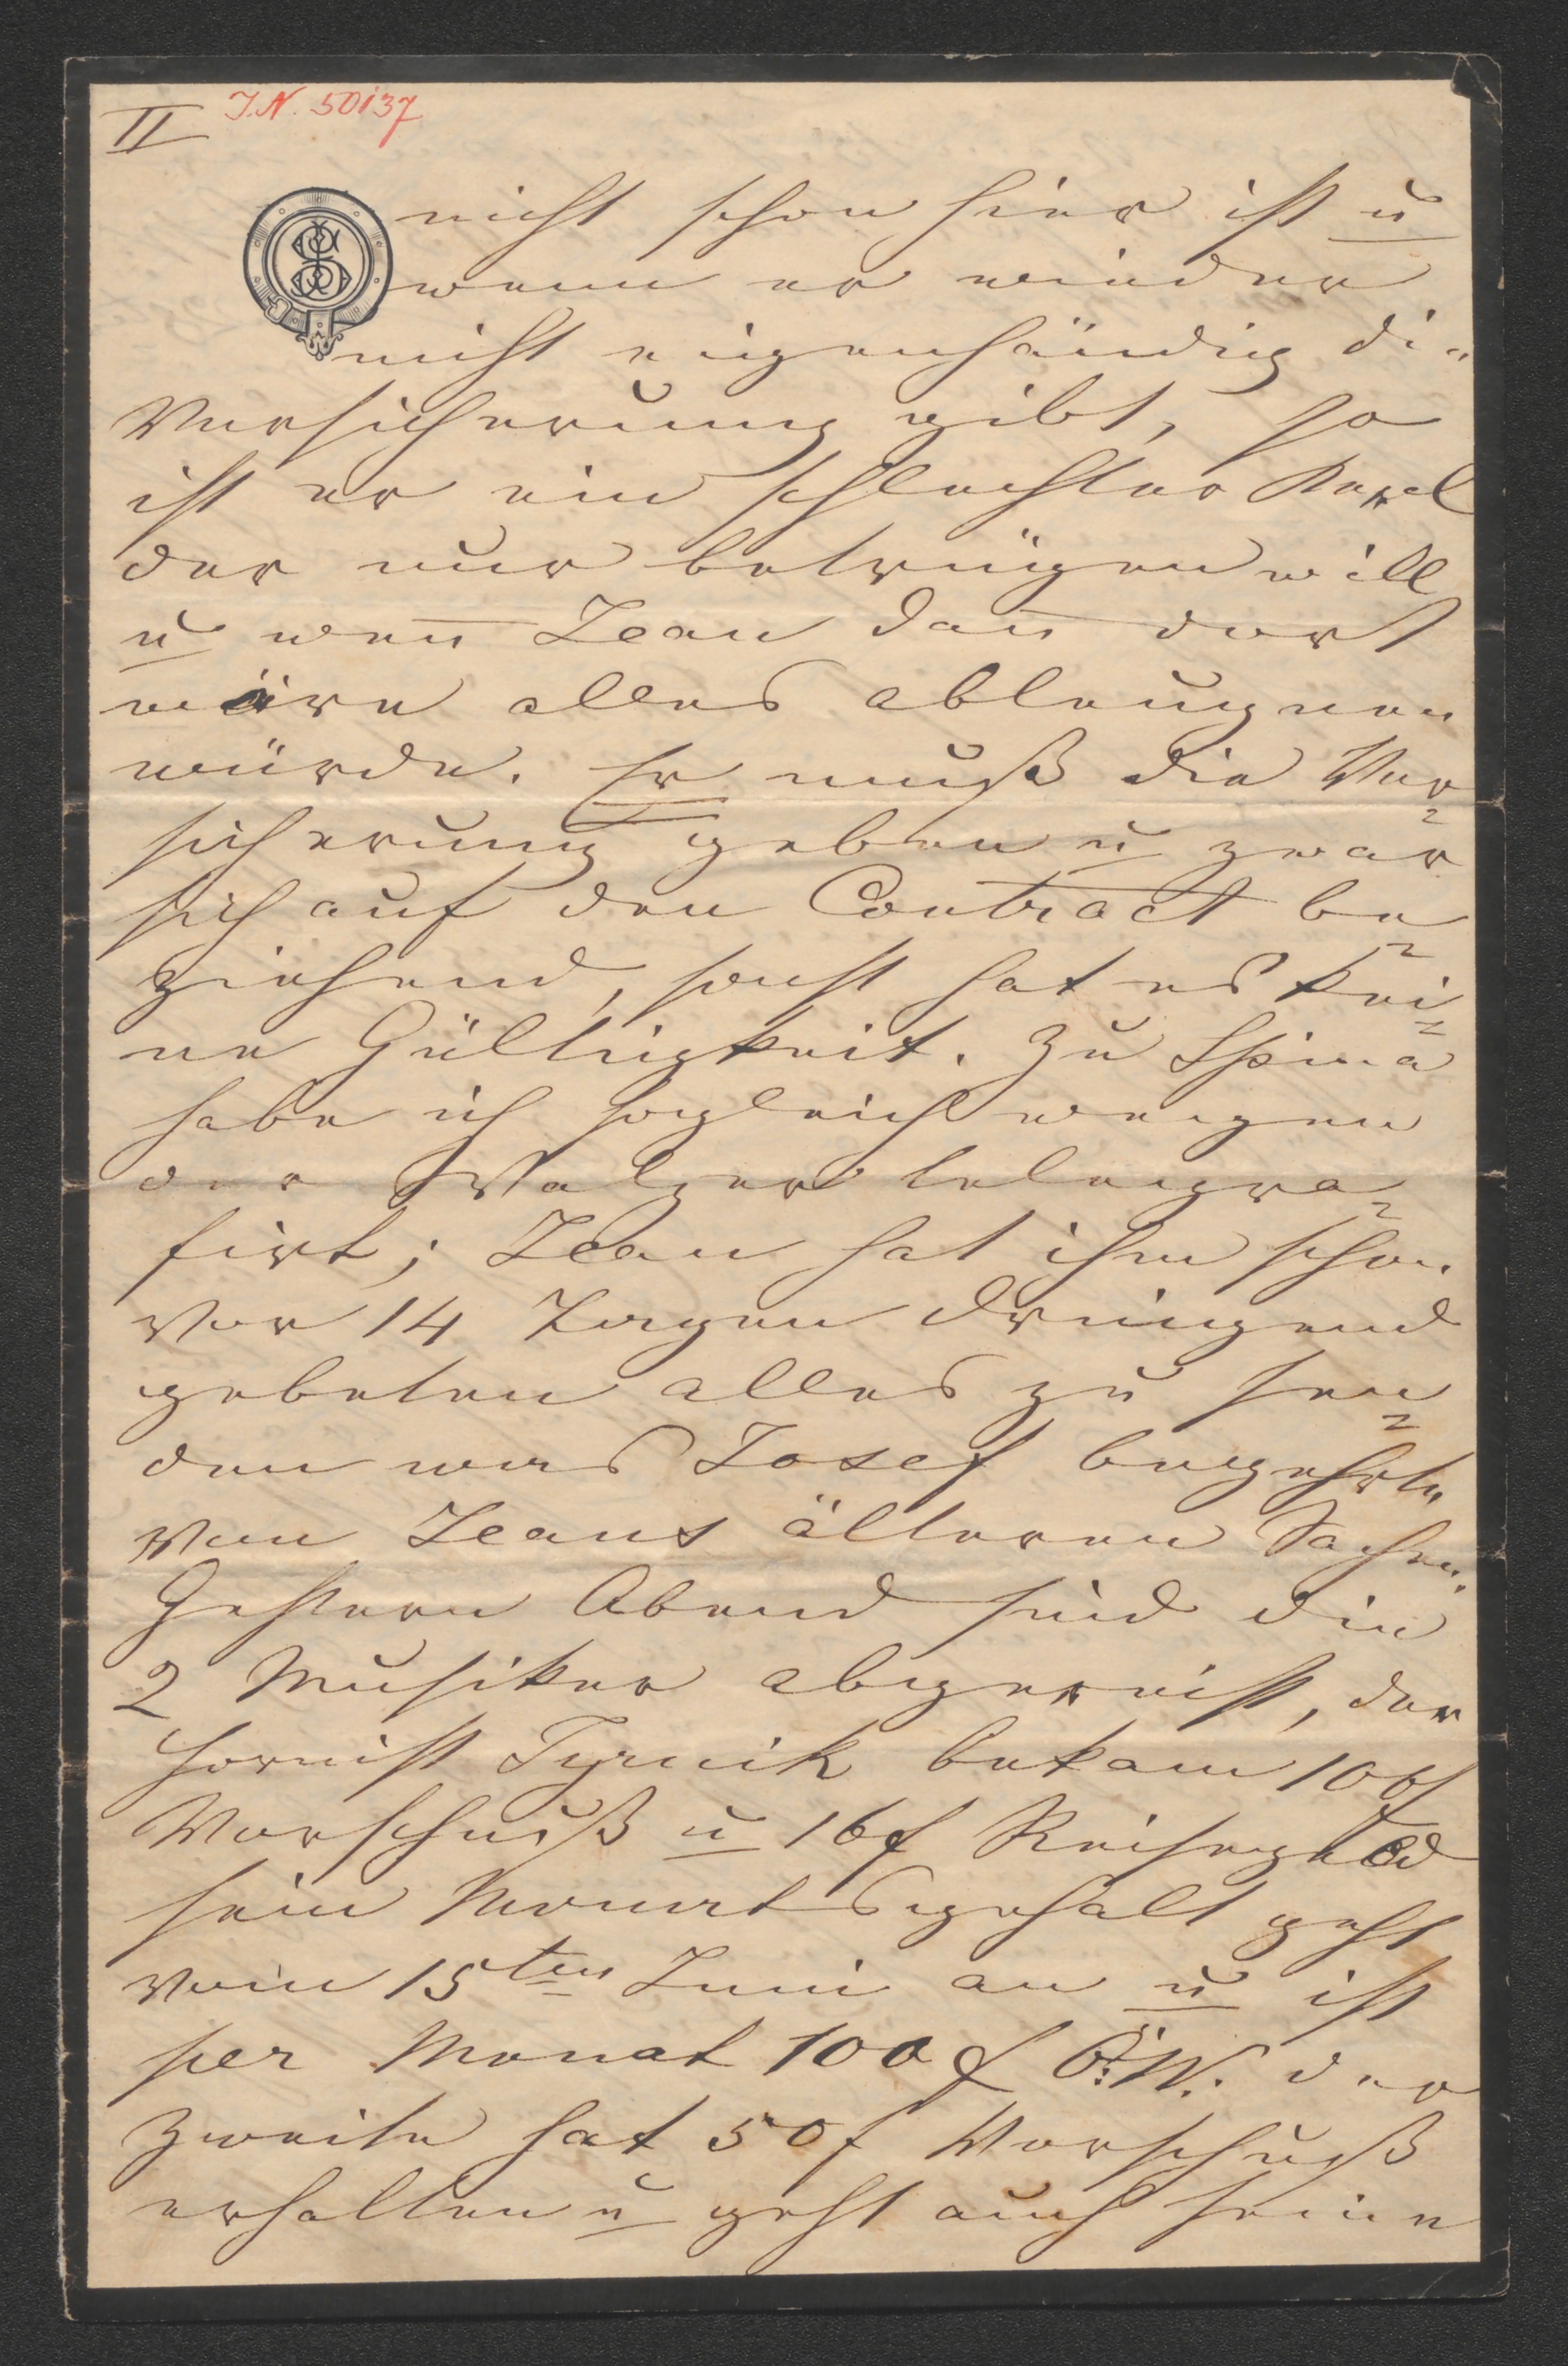 II J.N. 50137
nicht schon hier ist u
wenn er wieder
nicht eigenhändig die
Versicherung gibt, so
ist er ein schlechter Kerl
der nur betrügen will
u wen̄ Jean dan̄ dort
wäre alles ableugnen
würde. Er muß die Ver=
sicherung geben u zwar
sich auf den Contract be=
ziehend, sonst hat es kei=
ne Gültigkeit. Zu Spina
habe ich sogleich wegen
der Walzer telegra=
firt; Jean hat ihm schon
vor 14 Tagen dringend
gebeten alles zu sen=
den was Josef begehrte
von Jeans älteren Sachen.
Gestern Abend sind die
2 Musiker abgereist, der
Hornist Tyrnik bekam 100f
Vorschuß u 16f Reisegeld
sein Monatsgehalt geht
vom 15ten Juni an u ist
per Monat 100 f Ö:W. der
zweite hat 50f Vorschuß
erhalten u geht auch seine